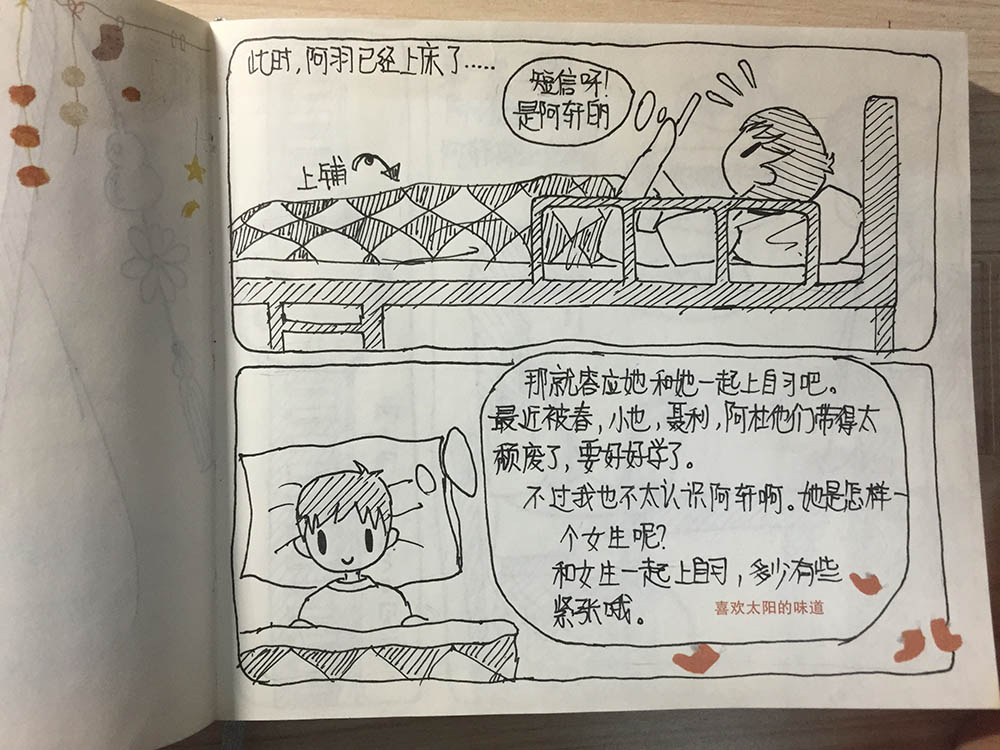 此时，阿羽已经上床了.....
短信呀！
是阿轩的
上铺
那就答应她和她一起上自习吧。
最近被春，小也，聂利，阿杜他们带得太
颓废了，要好好学了。
不过我也不太认识阿轩啊。她是怎样一
个女生呢？
和女生一起上自习，多少有些
紧张哦。
喜欢太阳的味道